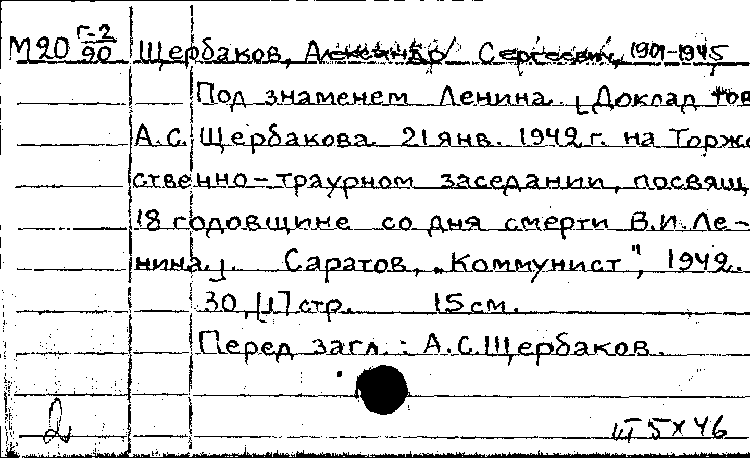 М20 Г-2/90 Щербаков, Александр Сергеевич, 1901-1945
Под знаменем Ленина. [Доклад тов
А.С. Щербакова 21 янв. 1942 г. на Торже
ственно-траурном заседании, посвящ
18 годовщине со дня смерти В.И. Ле-
нина.]. Саратов, „Коммунист", 1942.
30, [1] стр. 15 см.
Перед загл.: А.С. Щербаков.
2 5x46